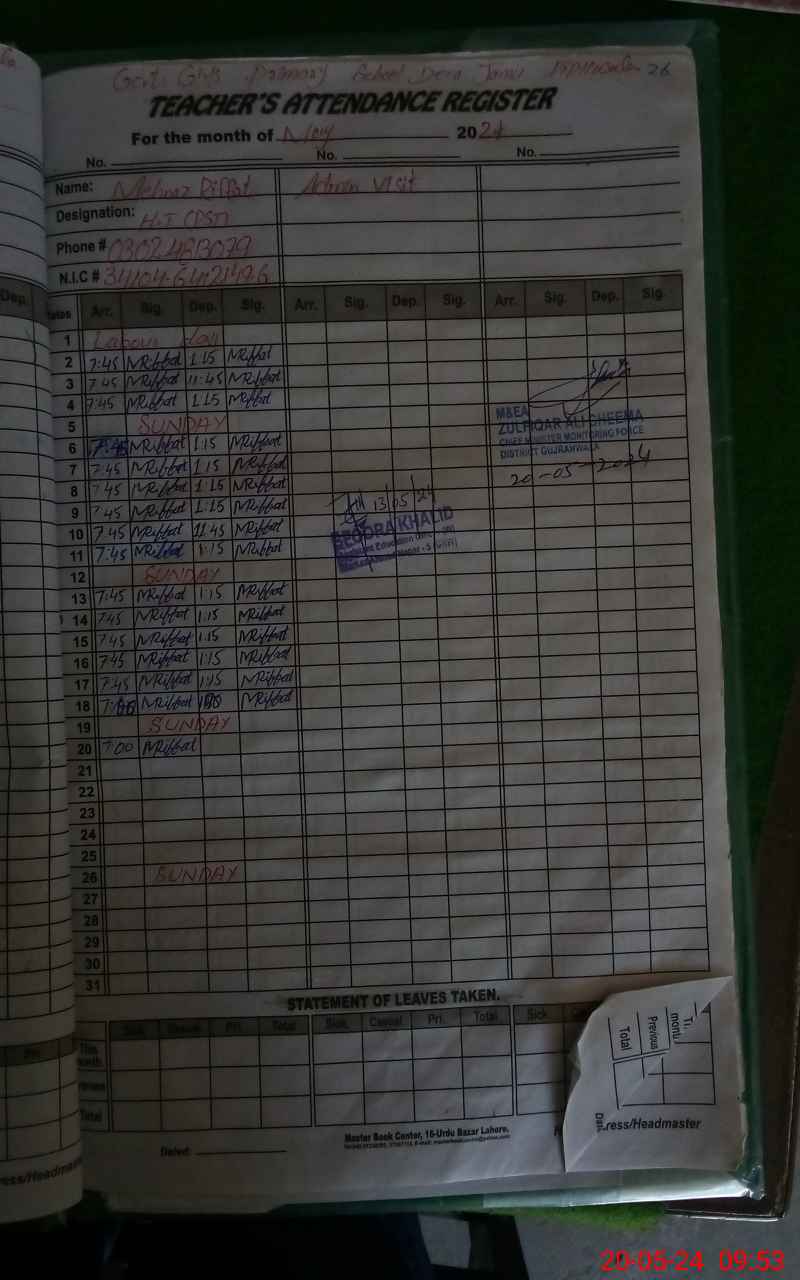 Govt. Girls Primary School Dera 26
TEACHER'S ATTENDANCE REGISTER
For the month of May 2024
No. No. No.
Name: Mehnaz Riffat Admin Visit
Designation:
Phone #
N.I.C #
Arr. Sig. Dep. Sig. Arr. Sig. Dep. Sig. Arr. Sig. Dep. Sig.
1 Labour day
2 7:45 MRiffat 1:15 MRiffat
3 7:45 MRiffat 11:45 MRiffat
4 7:45 MRiffat 1:15 MRiffat
5 SUNDAY
6 7:45 MRiffat 1:15 MRiffat
7 7:45 MRiffat 1:15 MRiffat
8 7:45 MRiffat 1:15 MRiffat
9 7:45 MRiffat 1:15 MRiffat
10 7:45 MRiffat 11:45 MRiffat
11 7:45 MRiffat 1:15 MRiffat
12 SUNDAY
13 7:45 MRiffat 1:15 MRiffat
14 7:45 MRiffat 1:15 MRiffat
15 7:45 MRiffat 1:15 MRiffat
16 7:45 MRiffat 1:15 MRiffat
17 7:45 MRiffat 1:15 MRiffat
18 MRiffat MRiffat
19 SUNDAY
20 7:00 MRiffat
21
22
23
24
25
26 SUNDAY
27
28
29
30
31
M&EA
ZULFIQAR ALI CHEEMA
CHIEF MINISTER MONITORING FORCE
DISTRICT GUJRANWALA
20-05-2024
13/05/24
KHALID
STATEMENT OF LEAVES TAKEN.
Sick Casual Pri. Total Sick Casual Pri. Total Sick
This month
Total
Previous
Total
Master Book Center, 16-Urdu Bazar Lahore.
Dated:
ress/Headmaster
20-05-24 09:53